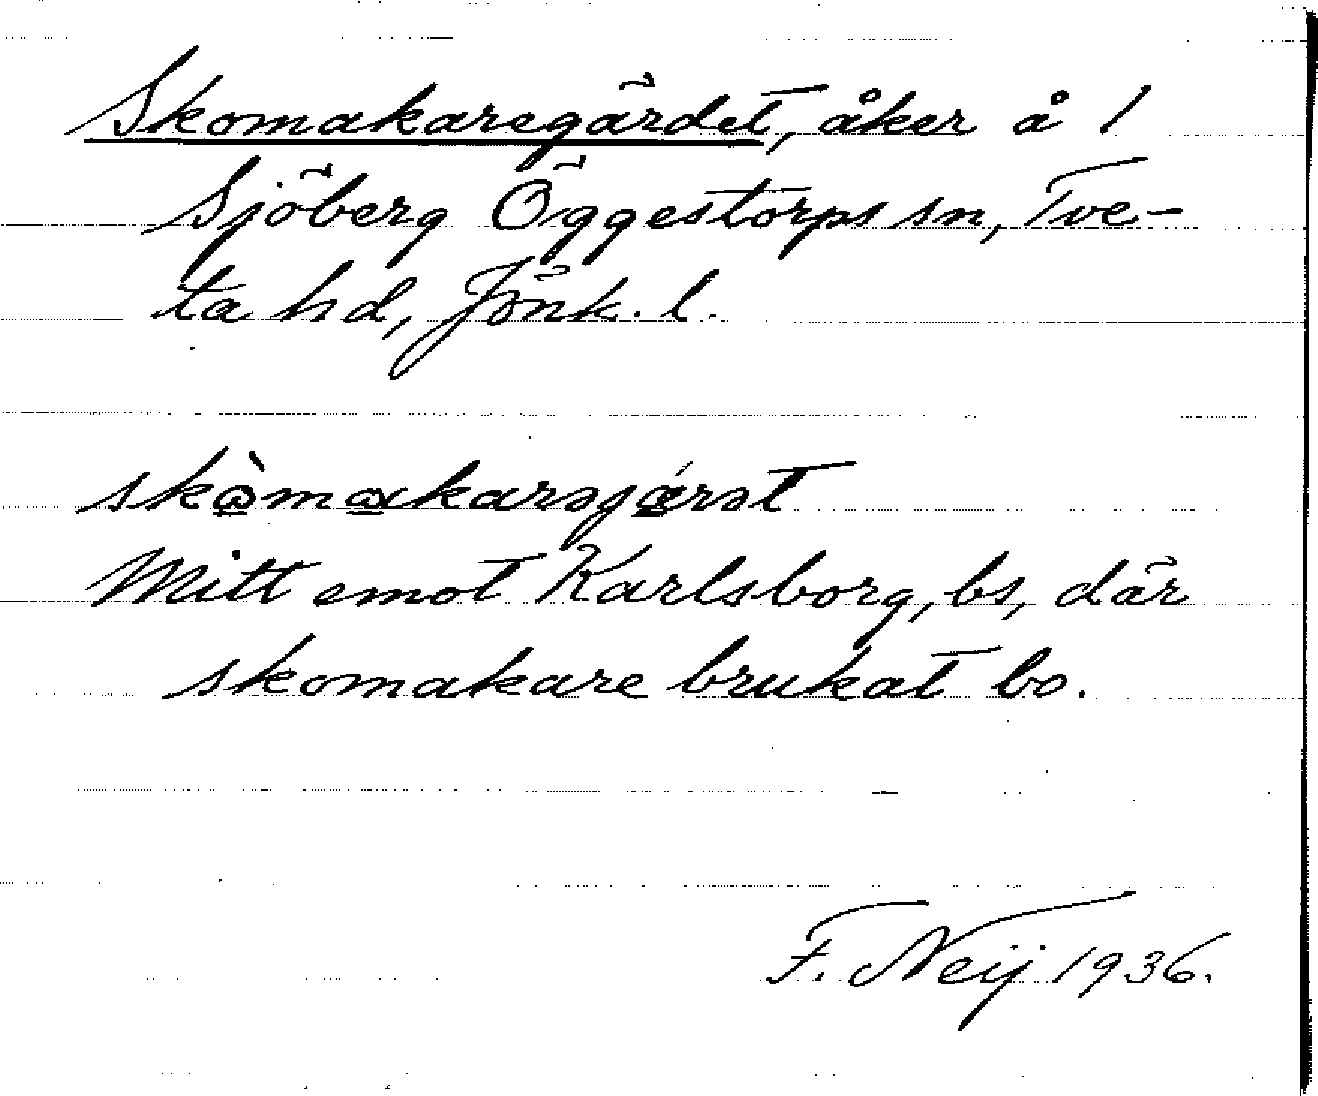 Skomakaregärdet, åker å 1
Sjöberg Öggestorps sn, Tve-
ta hd, Jönk. l.
skòmakarəgǽrət
Mitt emot Karlsborg, bs, där
skomakare brukat bo.
F. Neij 1936.